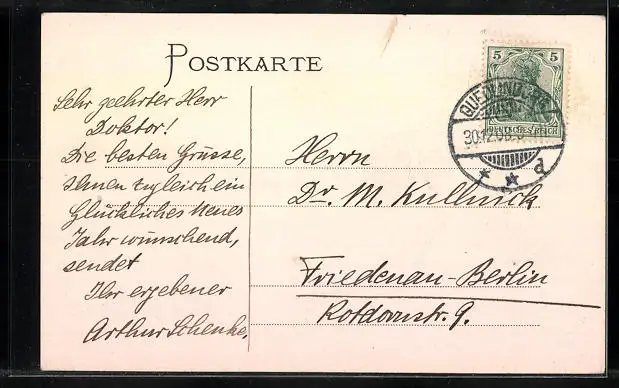 POSTKARTE
Sehr geehrter Herr
Doktor!
Die besten Grüsse,
Ihnen zugleich ein
Glückliches Neues
Jahr wünschend,
sendet
Ihr ergebener
Arthur Schenke.
5 5
DEUTSCHES REICH
30.12.08
d
Herrn
Dr. M. Kullnick
Friedenau-Berlin
Rotdornstr. 9.